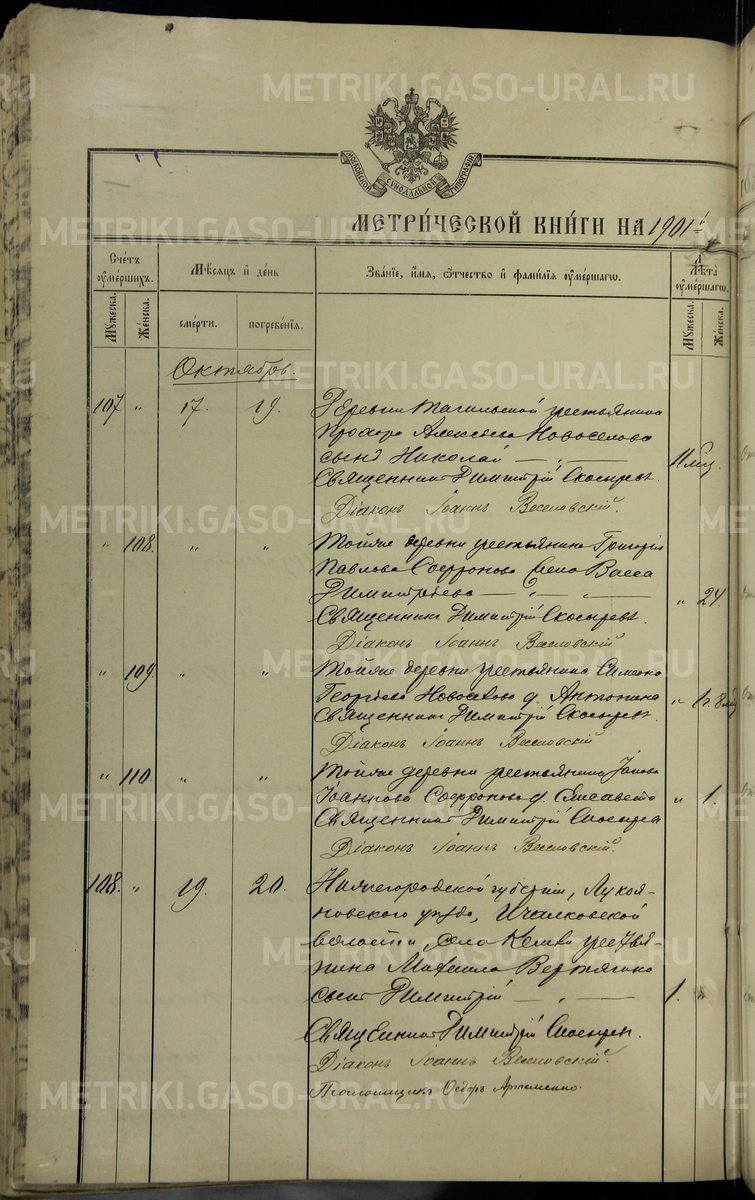 METRIKI.GASO-URAL.RU
МОСКОВСКОЙ СѴНОДАЛЬНОЙ ТИПОГРАФІИ
МЕТРИ́ЧЕСКОЙ КНИ́ГИ НА 1901
Сче́тъ ᲂу҆ме́ршихъ.
Мѣ́сяцъ и҆ де́нь
Зва́нїе, и҆́мя, ѻ҆́тчество и҆ фами́лїя ᲂу҆ме́ршагѡ.
Лѣ́та ᲂу҆ме́ршагѡ.
Мꙋ́жеска.
Же́нска.
сме́рти.
погребе́нїѧ.
Мꙋ́жеска.
Же́нска.
Октябрь.
107 " 17. 19. Деревни Тагильской крестьянина
Прохора Алексѣева Новоселова
сынъ Николай — " — 11 мѣс.
Священникъ Димитрій Скосыревъ.
Діаконъ Іоаннъ Веселовскій.
" 108. " " Тойже деревни крестьянина Григорія
Павлова Софронова жена Васса
Димитріева — " — " 24.
Священникъ Димитрій Скосыревъ.
Діаконъ Іоаннъ Веселовскій
" 109. " " Тойже деревни крестьянина Симеона
Георгіева Новоселова д. Антонина " 1 г. 8 мѣс
Священникъ Димитрій Скосыревъ.
Діаконъ Іоаннъ Веселовскій
" 110. " " Тойже деревни крестьянина Іакова
Іоаннова Софронова д. Елисавета " 1.
Священникъ Димитрій Скосыревъ
Діаконъ Іоаннъ Веселовскій.
108. " 19. 20. Нижегородской губерніи, Лукоя-
новского уѣзда, Ичалковской
волости, села Кемли крестья-
нина Михаила Вертягина
сынъ Димитрій — " — 1. "
Священникъ Димитрій Скосыревъ.
Діаконъ Іоаннъ Веселовскій.
Псаломщикъ Ѳедоръ